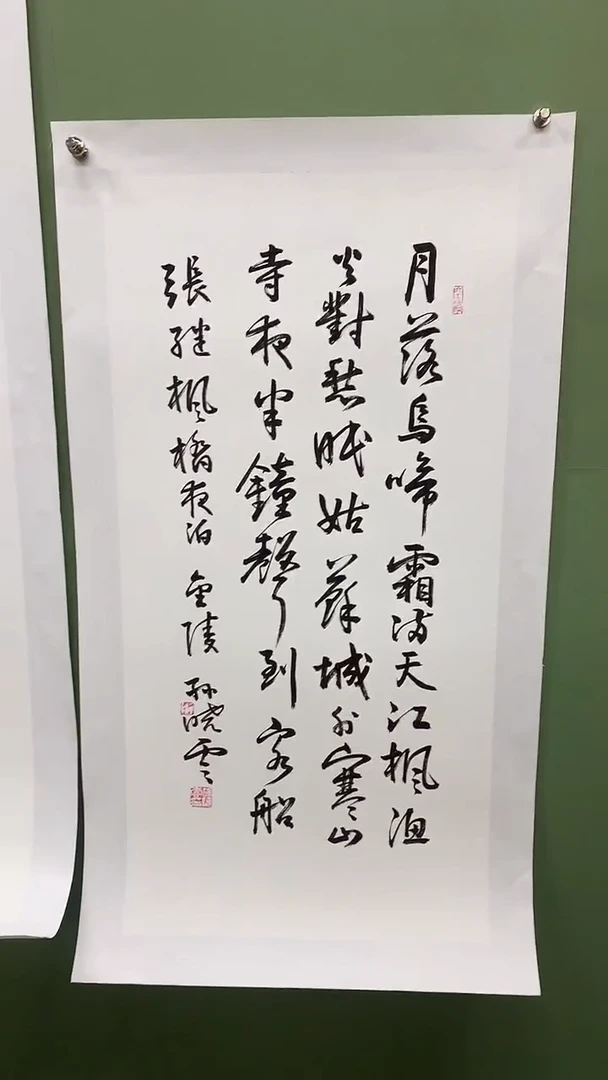 月落烏啼霜滿天江楓漁
火對愁眠姑蘇城外寒山
寺夜半鐘聲到客船
張継楓橋夜泊 金陵 孫曉雲